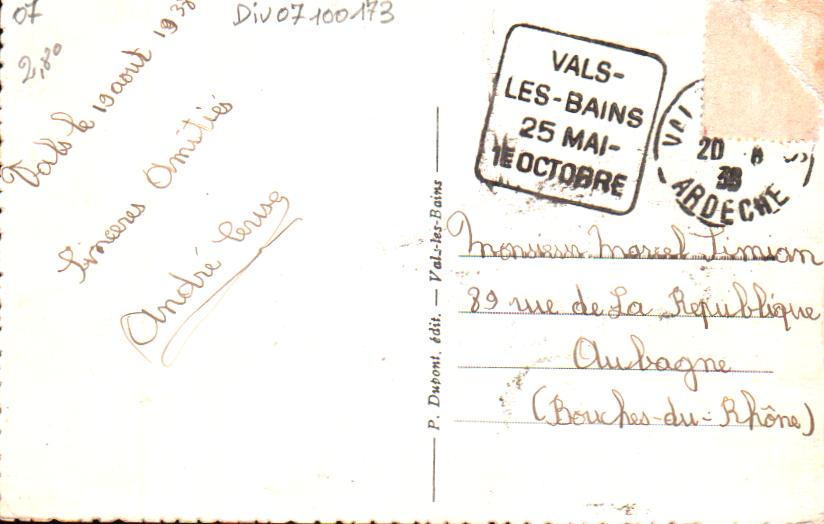 07
Div07100173
2,80
Vals le 19 aout 1938
Sincères Amitiés
André
VALS-
LES-BAINS
25 MAI-
1E OCTOBRE
20 8 38
ARDECHE
P. Dupont, édit. — Vals-les-Bains
Monsieur Marcel Simian
89 rue de La Republique
Aubagne
(Bouches-du-Rhône)